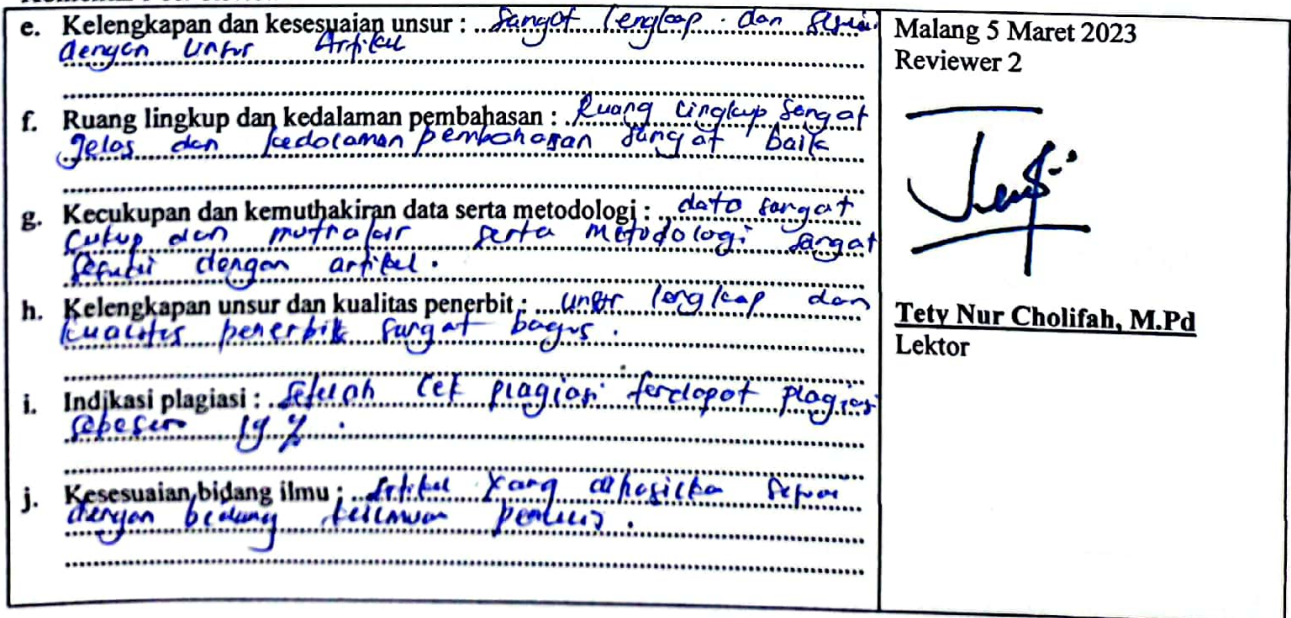 e. Kelengkapan dan kesesuaian unsur : sangat lengkap dan sesuai
dengan unsur Artikel
f. Ruang lingkup dan kedalaman pembahasan : Ruang lingkup sangat
jelas dan kedalaman pembahasan sangat baik
g. Kecukupan dan kemuthakiran data serta metodologi : data sangat
cukup dan mutakhir serta metodologi sangat
sesuai dengan artikel.
h. Kelengkapan unsur dan kualitas penerbit : unsur lengkap dan
kualitas penerbit sangat bagus.
i. Indikasi plagiasi : setelah cek plagiasi terdapat plagiasi
sebesar 19 %.
j. Kesesuaian bidang ilmu : Artikel yang dihasilka sesuai
dengan bidang keilmuan penulis.
Malang 5 Maret 2023
Reviewer 2
Tety Nur Cholifah, M.Pd
Lektor